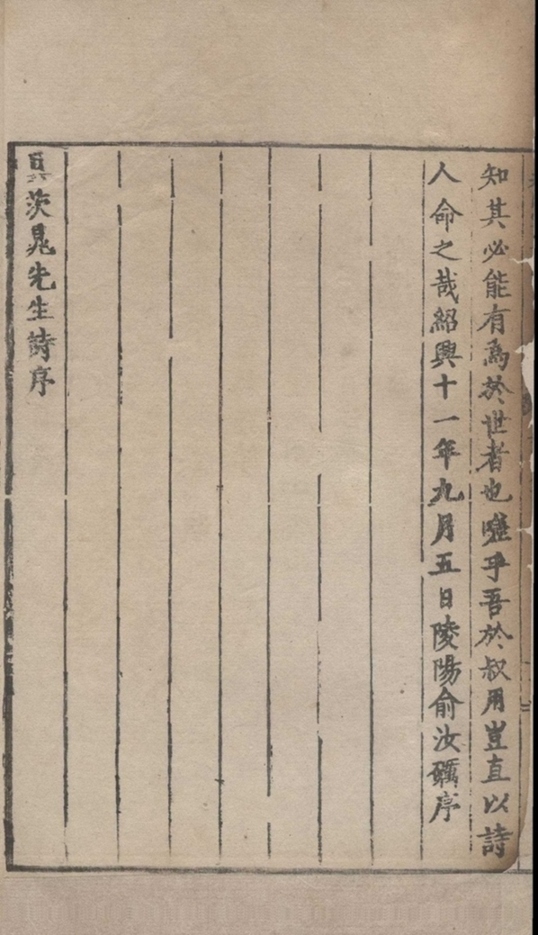 知其必能有爲於世者也嗟乎吾於叔用豈直以詩
人命之哉紹興十一年九月五日陵陽俞汝礪序
具茨晁先生詩序